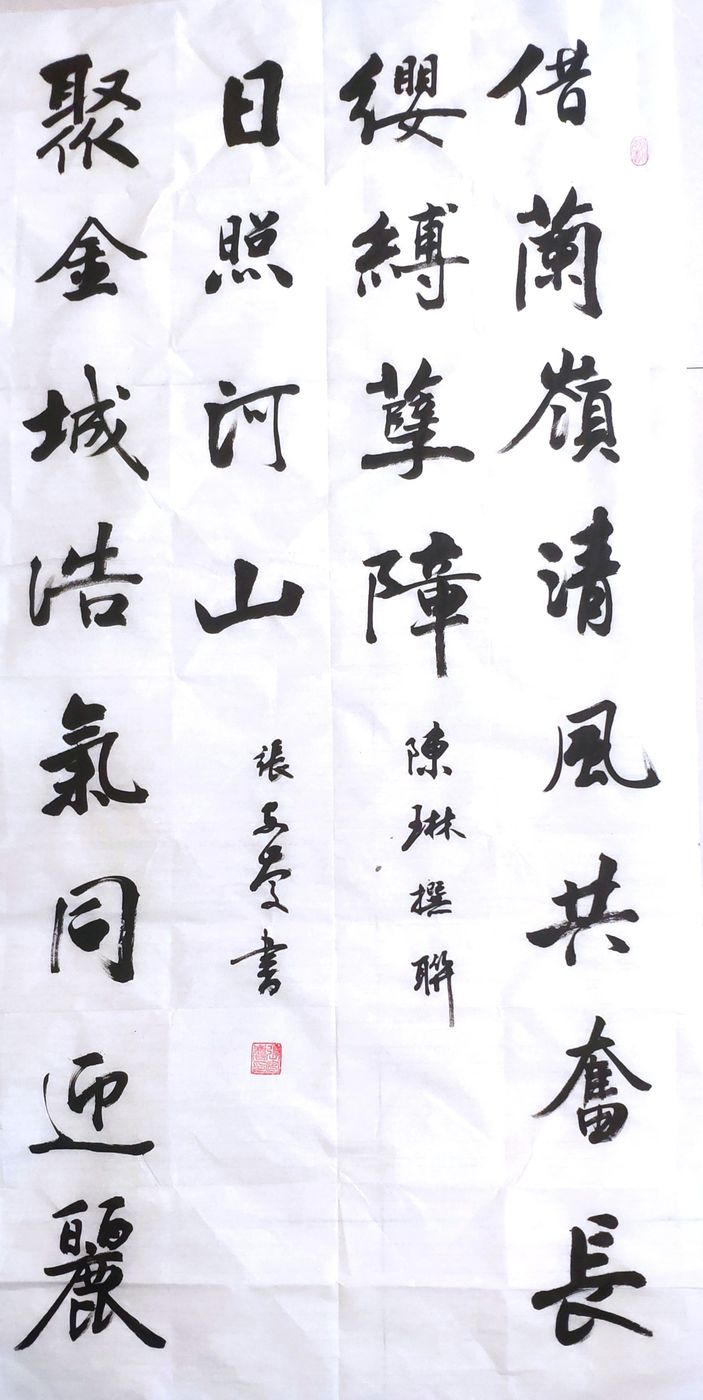 借蘭嶺清風共奮長
纓縛孽障
陳琳撰聯
聚金城浩氣同迎麗
日照河山
張書